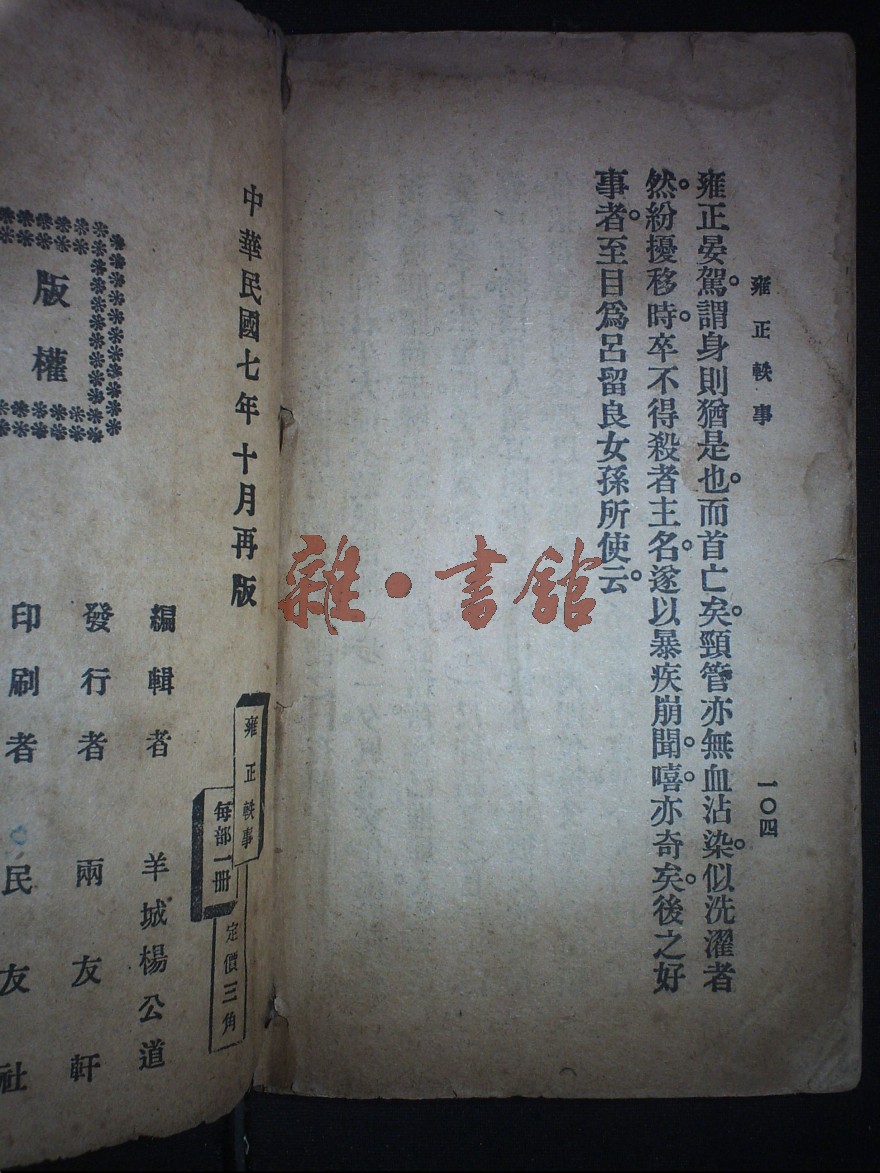 雍正軼事
一〇四
雍正晏駕。謂身則猶是也。而首亡矣。頸管亦無血沾染。似洗濯者
然。紛擾移時。卒不得殺者主名。遂以暴疾崩聞。嘻。亦奇矣。後之好
事者。至目爲呂留良女孫所使云。
中華民國七年十月再版
雍正軼事
每部一冊
定價三角
編輯者 羊城楊公道
發行者 兩友軒
印刷者 民友社
版權
雜·書館